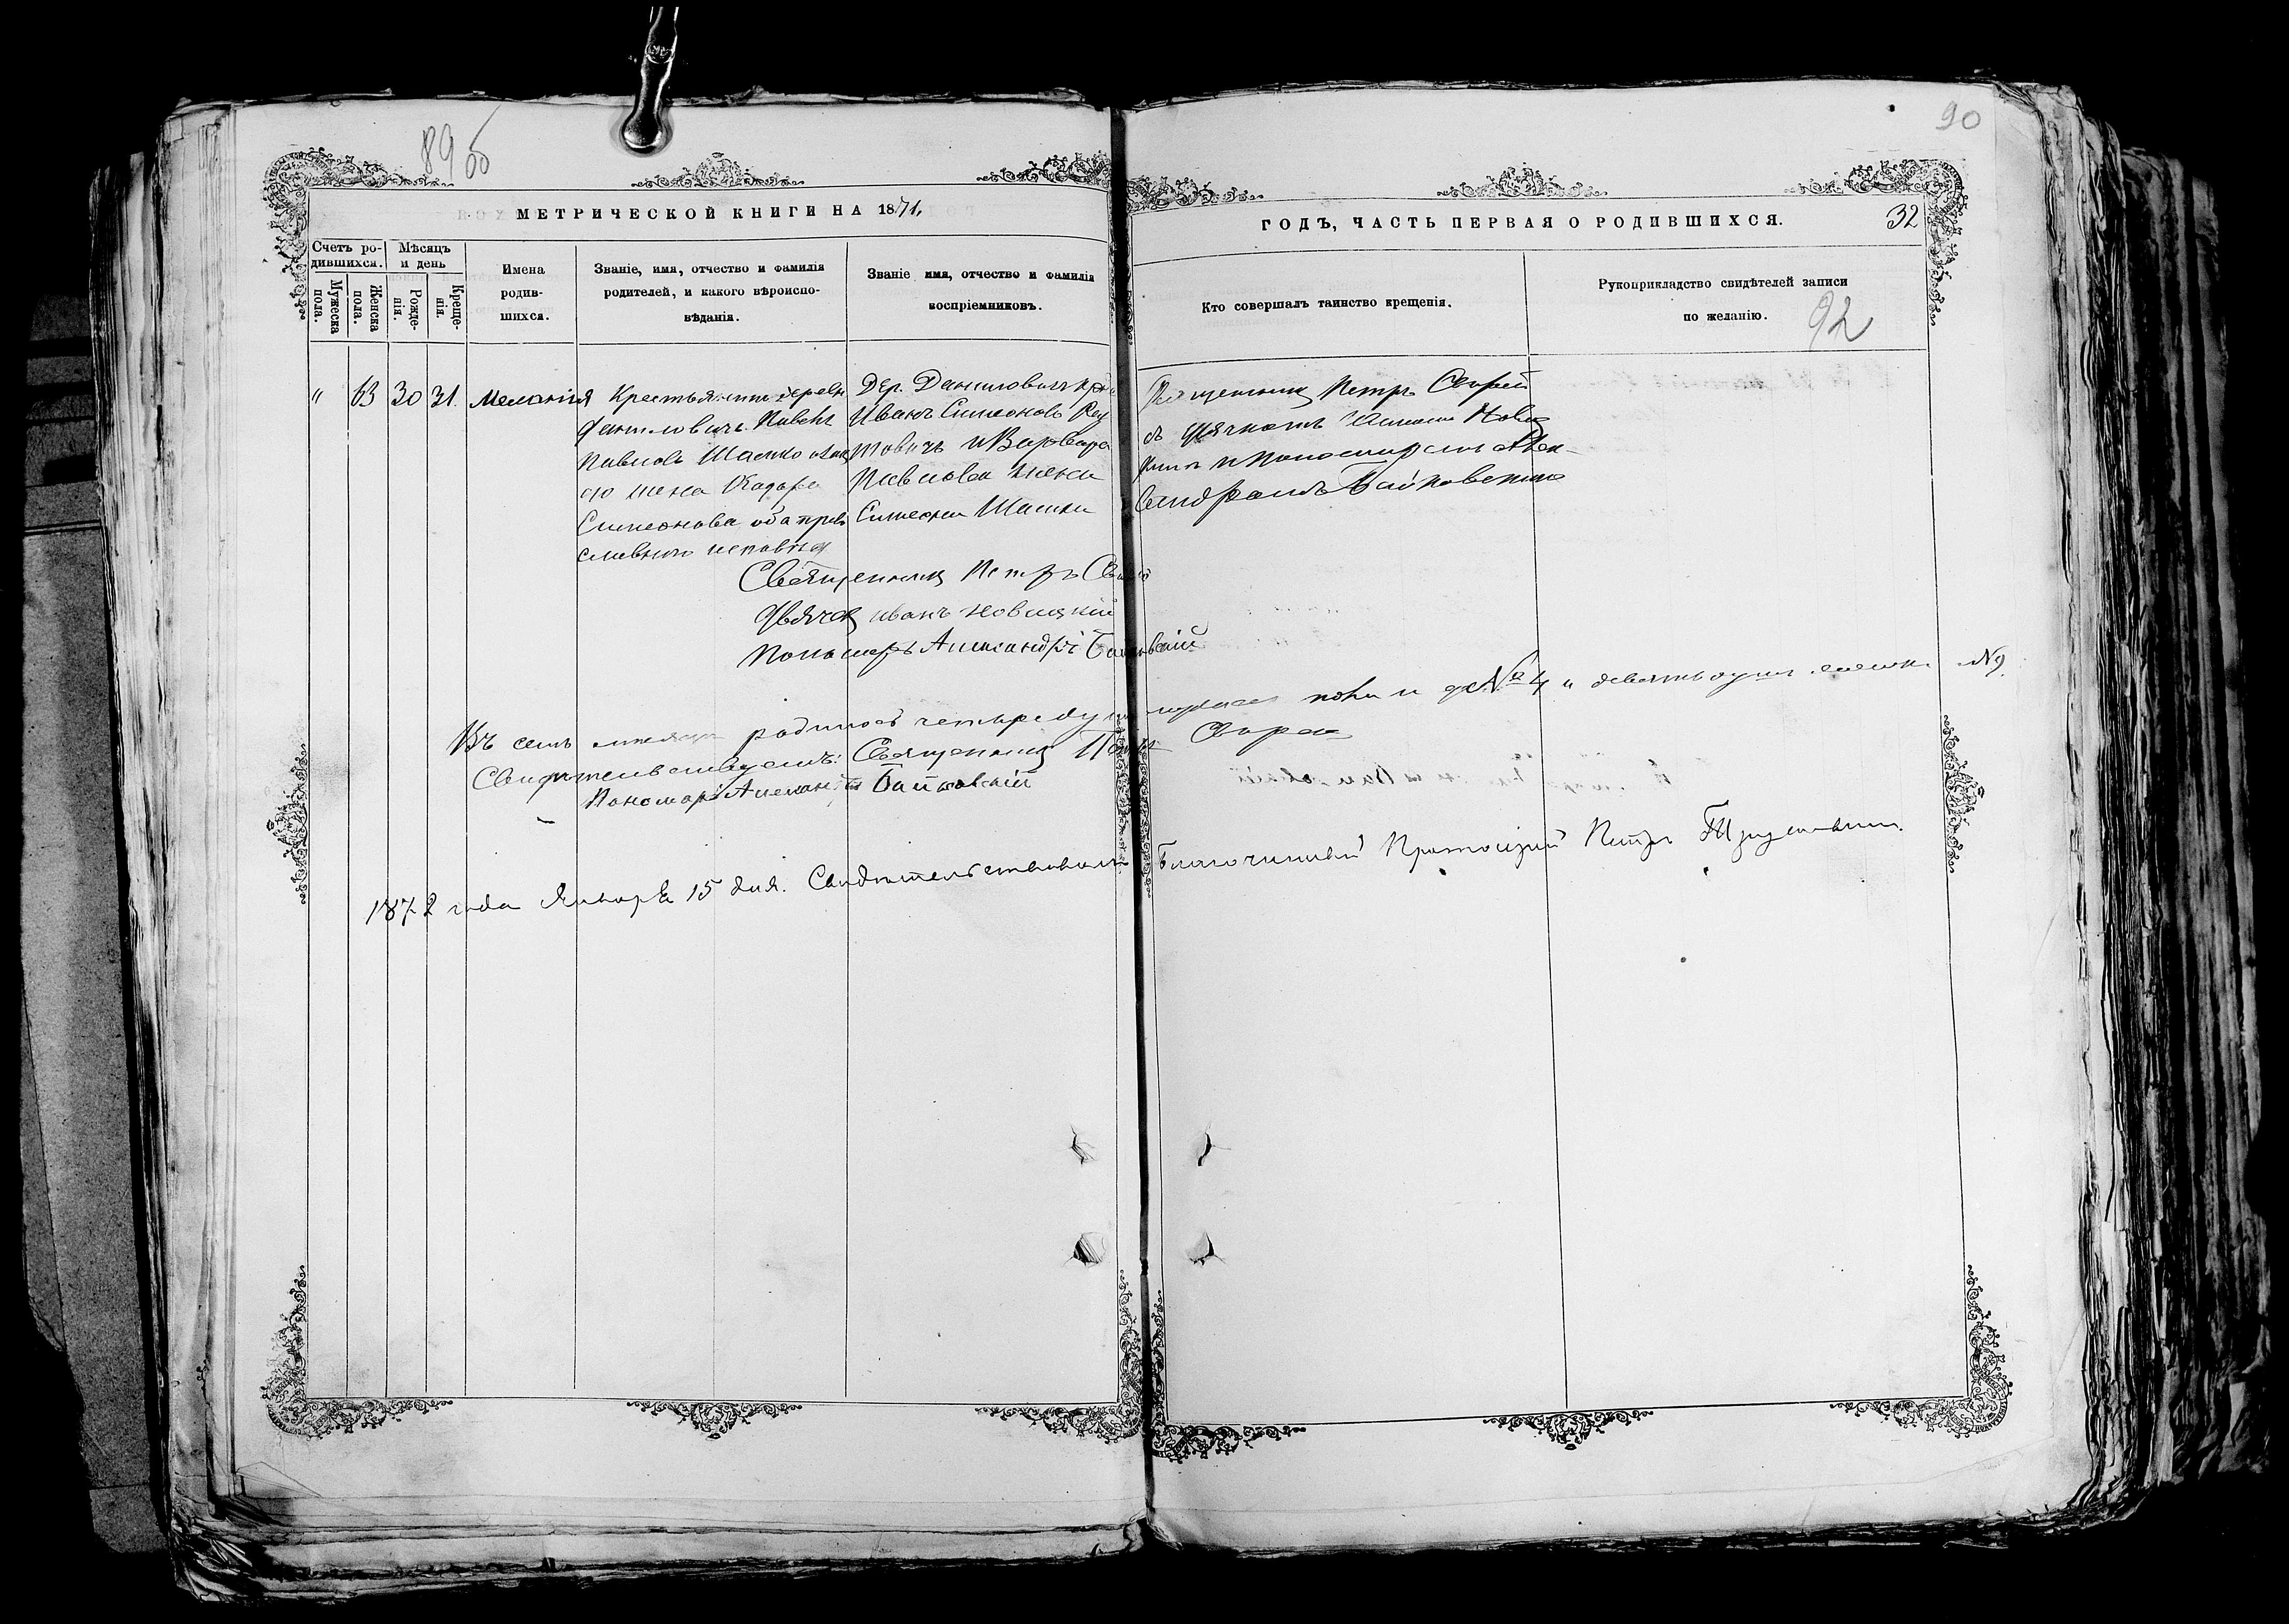 89 об
90
МЕТРИЧЕСКОЙ КНИГИ НА 1871.
ГОДЪ, ЧАСТЬ ПЕРВАЯ О РОДИВШИХСЯ.
32
Счетъ ро-
дившихся.
Мужеска
пола.
Женска
пола.
Мѣсяцъ
и день
Рожде-
нія.
Креще-
нія.
Имена
родив-
шихся.
Званіе, имя, отчество и фамилія
родителей, и какого вѣроиспо-
вѣданія.
Званіе имя, отчество и фамилія
воспріемниковъ.
Кто совершалъ таинство крещенія.
Рукоприкладство свидѣтелей записи
по желанію.
92
" 63 30 31. Меланія
Крестьянинъ деревни
Даниловичъ Павелъ
Павловъ Шамко
его жена
Симеонова оба прав
славнаго исповѣд
Дер. Даниловичъ кре
Иванъ Симеоновъ
и Варвара
Павлова жена
Симеона Шамки
Священникъ Петръ
съ Дьячкомъ Иваномъ Новиц
кимъ и Пономаремъ Алек-
сандромъ Байковскимъ
Священникъ Петръ
Дьячекъ Иванъ Новицкій
Пономарь Александръ Байковскій
Въ семъ мѣсяцѣ родилось четыре души № 4 и девять душъ женск. № 9.
Свидѣтельствуемъ: Священникъ Петръ
Пономарь Александръ Байковскій
1872 года Января 15 дня. Свидѣтельствовалъ Благочинный Протоіерей Петръ